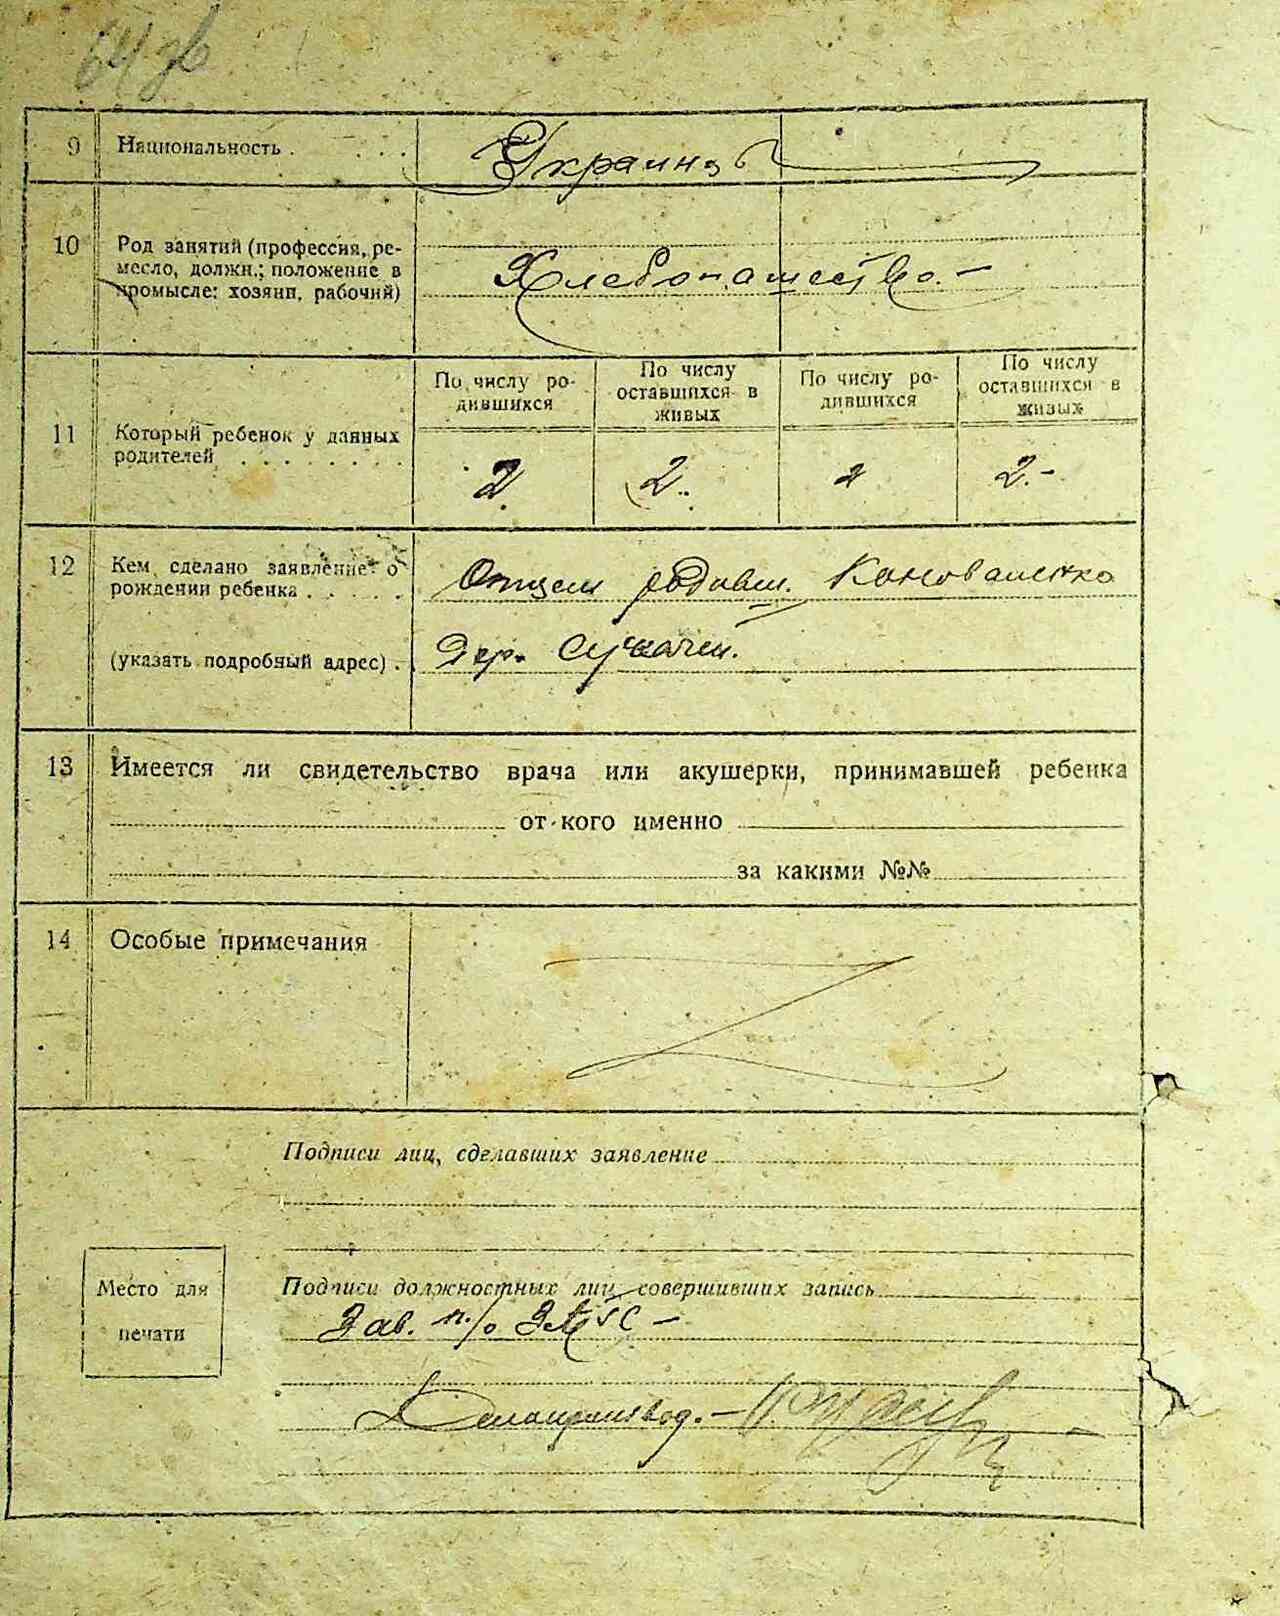 64 зв
9 Национальность . . . . . Украинцы
10 Род занятий (профессия, ре-
месло, должн.; положение в
промысле: хозяин, рабочий)
Хлебопашество. –
По числу ро-
дившихся
По числу
оставшихся в
живых
По числу ро-
дившихся
По числу
оставшихся в
живых
11 Который ребенок у данных
родителей . . . . . . .
2 2. 2 2.-
12 Кем сделано заявление о
рождении ребенка . . . . .
Отцем родивш. Коноваленко
(указать подробный адрес) . Дер.
13 Имеется ли свидетельство врача или акушерки, принимавшей ребенка
от кого именно
за какими №№
14 Особые примечания
Подписи лиц, сделавших заявление
Место для
печати
Подписи должностных лиц, совершивших запись
Зав. п/о ЗАГС –
Делопроизвод. –